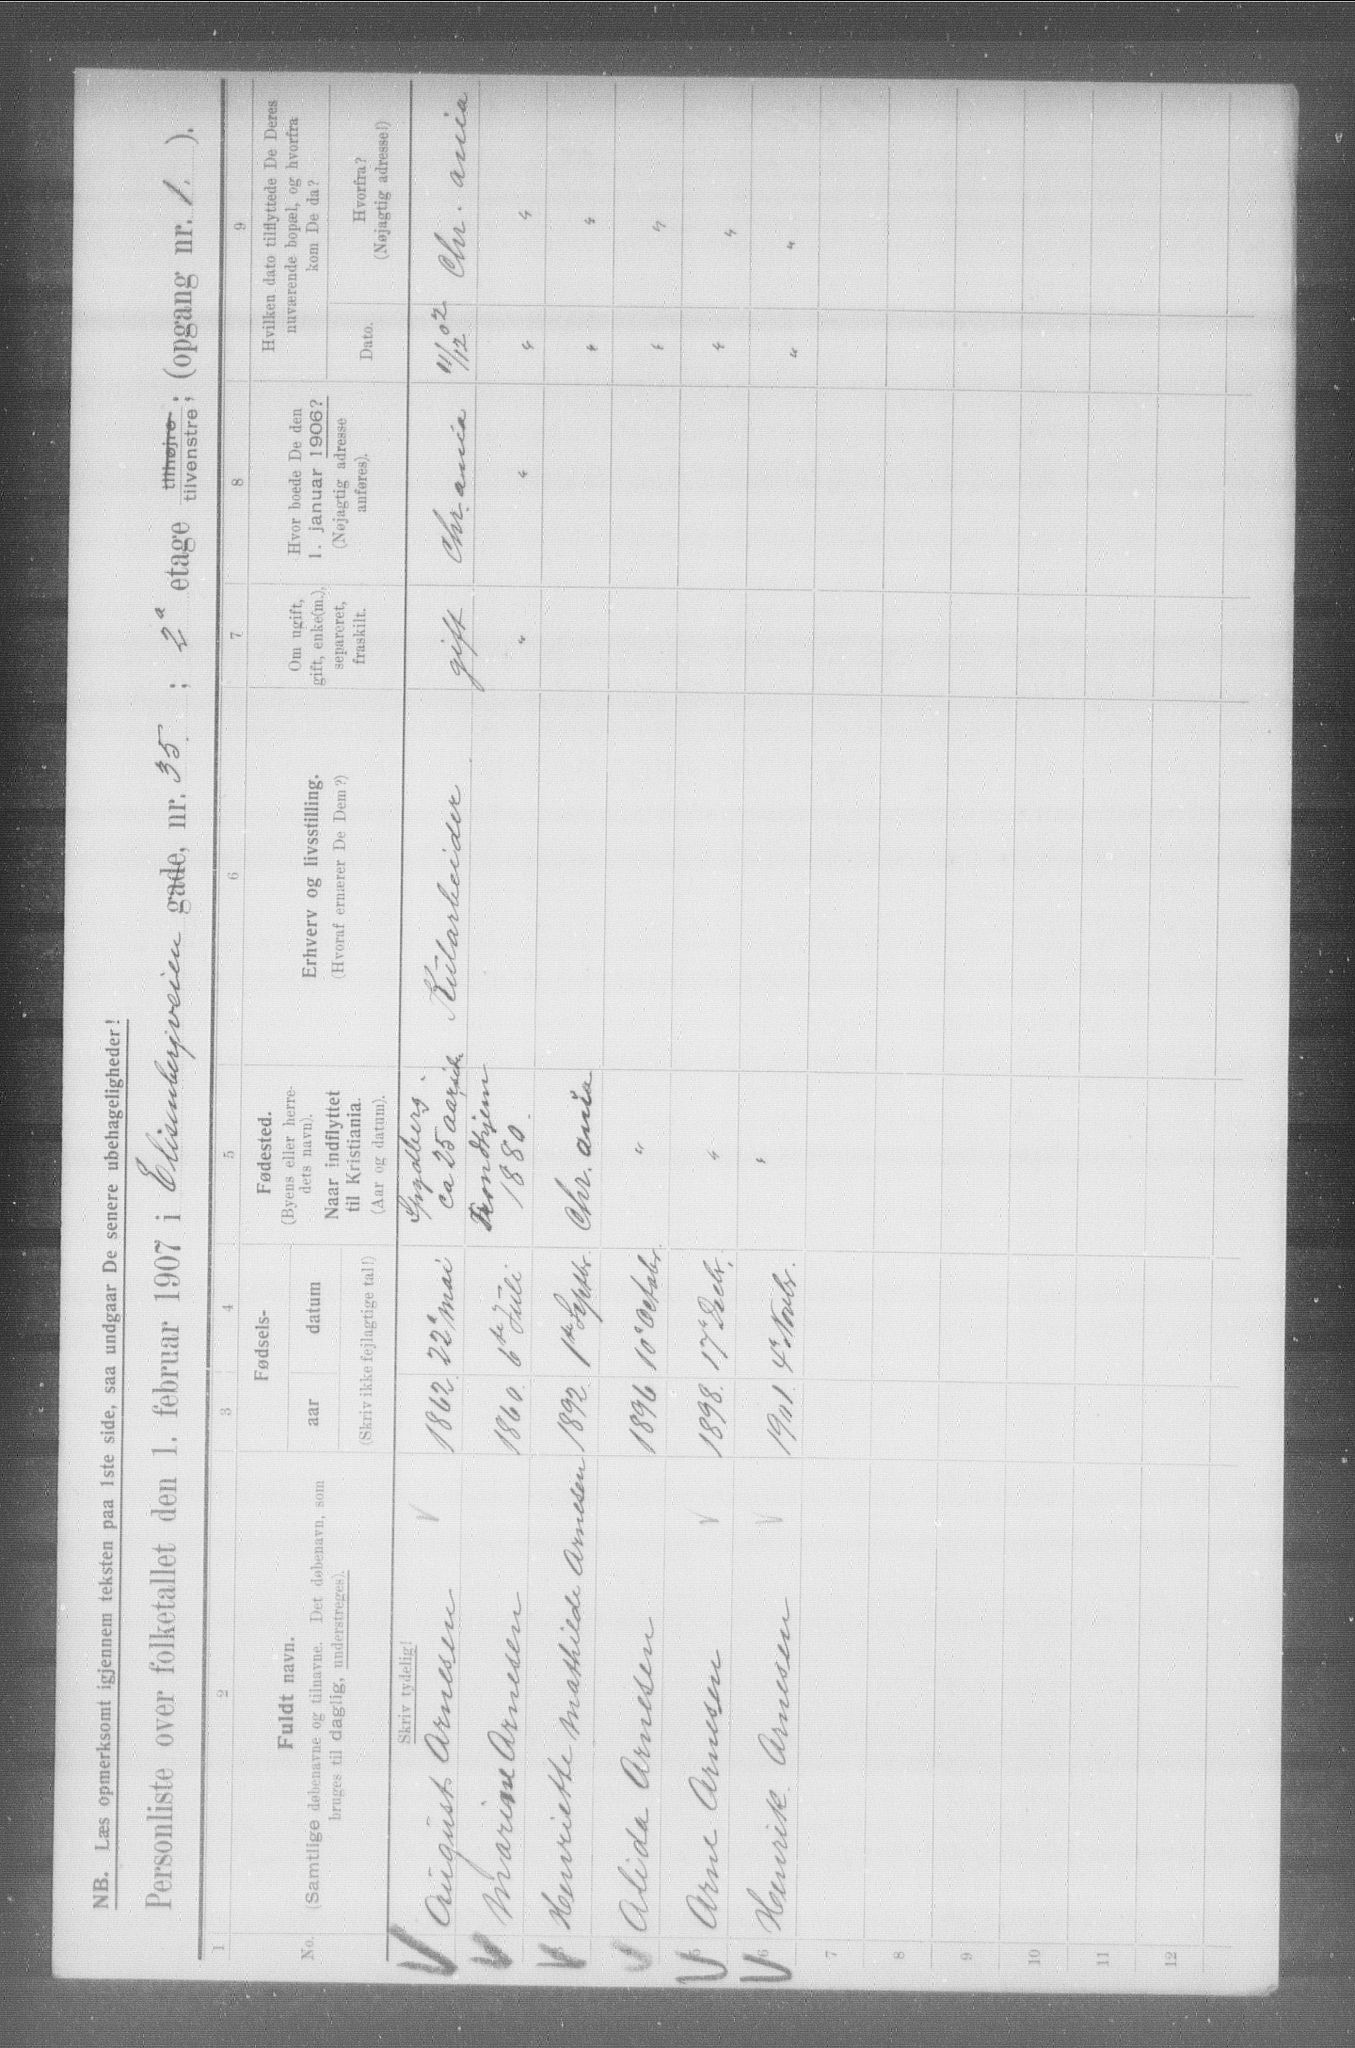 NB. Læs opmerksomt igjennem teksten paa 1ste side, saa undgaar De senere ubehageligheder!
Personliste over folketallet den 1. februar 1907 i Elisenbergveien gade, nr. 35 ; 2a etage tilhøire tilvenstre ; (opgang nr. 1. ).
1 2 3 4 5 6 7 8 9
No.
Fuldt navn.
(Samtlige døbenavne og tilnavne. Det døbenavn, som
bruges til daglig, understreges).
Skriv tydelig!
Fødsels-
aar datum
(Skriv ikke fejlagtige tal!)
Fødested.
(Byens eller herre-
dets navn).
Naar indflyttet
til Kristiania.
(Aar og datum).
Erhverv og livsstilling.
(Hvoraf ernærer De Dem?)
Om ugift,
gift, enke(m.),
separeret,
fraskilt.
Hvor boede De den
1. januar 1906?
(Nøjagtig adresse
anføres).
Hvilken dato tilflyttede De Deres
nuværende bopæl, og hvorfra
kom De da?
Dato.
Hvorfra?
(Nøjagtig adresse!)
August Arnesen 1862 22a mai ca 25 aar siden Kularbeider gift Chr. ania 11/12 02 Chr. ania
Marine Arnesen 1860. 6te Juli Trondhjem 1880. " " " "
Henriette Mathilde Arnesen 1892. 1te Septbr. Chr. ania " "
Alida Arnesen 1896 10de Octobr. " " "
5 Arne Arnesen 1898. 17de Decbr. " " "
6 Henrik Arnesen 1901. 4de Novbr. " " "
7
8
9
10
11
12